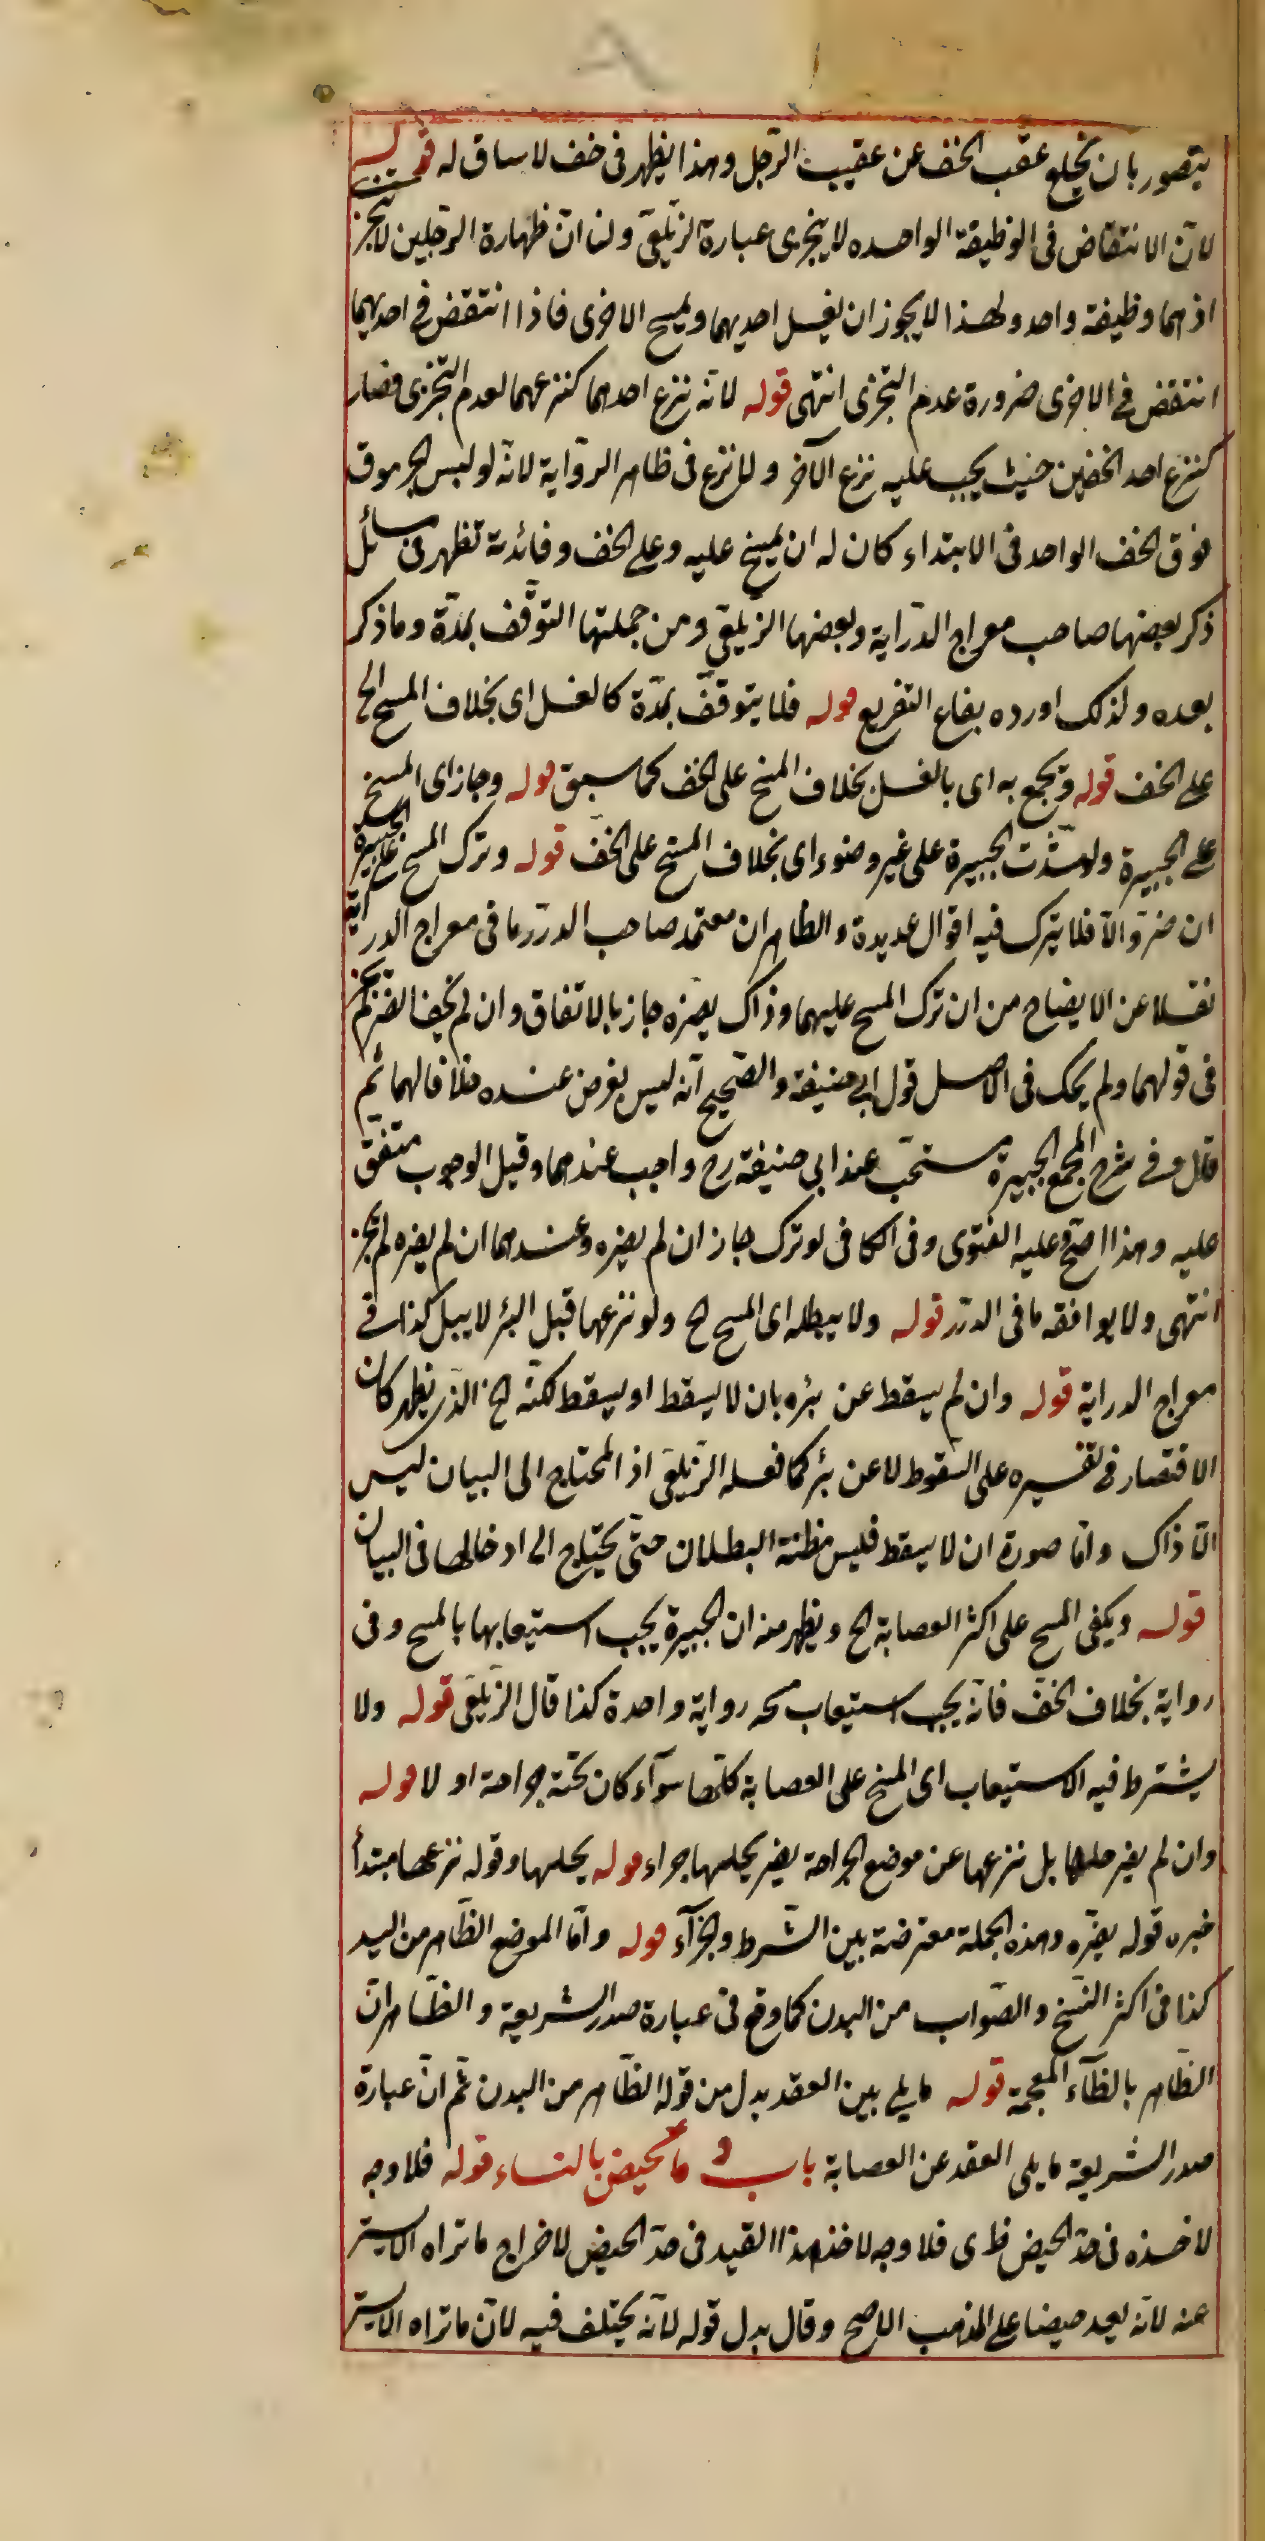 يتصور بان يخلع عقب الخف عن عقيب الرّجل وهذا يظهر فى خف لا ساق له قوله
لانّ الانتقاض فى الوظيفة الواحده لا يتجزى عبارة الزيلعى ولنا انّ طهارة الرّجلين لا يتجز
اذ هما وظيفة واحد ولهذا لا يجوز ان يغسل احديهما ويمسح الاخرى فاذا انتقض فى احديهما
انتقض فى الاخرى ضرورة عدم التجزى انتهى قوله لانّه نزع احدهما كنزعهما لعدم التجزى فصار
كنزع احد الخفين حيث يجب عليه نزع الآخر ولا نزع فى ظاهر الروّاية لانّه لو لبس الجرموق
فوق الخف الواحد فى الابتداء كان له ان يمسح عليه وعلى الخف وفائدته تظهر فى مسائل
ذكر بعضها صاحب معراج الدّراية وبعضها الزيلعى ومن جملتها التوقّف بمدّة وما ذكر
بعده ولذلك اورده بفاء التفريع قوله فلا يتوقّف بمدّة كالغسل اى بخلاف المسح الخ
على الخف قوله ويجمع به اى بالغسل بخلاف المسح على الخف كما سبق قوله وجاز اى المسح
على الجبيرة ولو شدّت الجبيرة على غير وضوء اى بخلاف المسح على الخفّ قوله وترك المسح على الجبيرة
ان ضرّ والّا فلا يترك فيه اقوال عديدة والظاهر ان معتمد صاحب الدرر ما فى معراج الدراية
نقلا عن الايضاح من ان ترك المسح عليهما وذاك يضره جاز بالاتفاق وان لم يخف الضرر لم يجز
فى قولهما ولم يحك فى الاصل قول ابى حنيفة والصّحيح انّه ليس بفرض عنده خلافا لهما ثم
قال وفى شرح المجمع الجبيرة مستحبّ عند ابى حنيفة رح واجب عندهما وقيل الوجوب متفق
عليه وهذا اصحّ وعليه الفتوى وفى الكافى لو ترك جاز ان لم يضره وعندهما ان لم يضره لم يجز
انتهى ولا يوافقه ما فى الدرر قوله ولا يبطله اى المسح الخ ولو نزعهما قبل البئر لا يبل كذا فى
معراج الدراية قوله وان لم يسقط عن برْه بان لا يسقط او يسقط لكنّه الخ الذى يظهر كان
الاقتصار فى تفسيره على السّقوط لا عن برْ كما فعله الزيلعى اذ المحتاج الى البيان ليس
الّا ذاك وامّا صورة ان لا يسقط فليس مظنة البطلان حتّى يحتاج الى ادخالها فى البيان
قوله ويكفى المسح على اكثر العصابة الخ ويظهر منه ان الجبيرة يجب استيعابها بالمسح وفى
رواية بخلاف الخفّ فانّه لا يجب استيعاب مسحه رواية واحدة كذا قال الزيلعى قوله ولا
يشترط فيه الاستيعاب اى المسح على العصابة كلّها سوآء كان تحته جراحة او لا قوله
وان لم يضر حلها بل نزعها عن موضع الجراحة يضر يحلها جزاء قوله يحلها وقوله نزعها مبتدأ
خبره قوله يضرّه وهذه الجملة معترضة بين الشّرط والجزآء قوله وامّا الموضع الظّاهر من اليد
كذا فى اكثر النّسخ والصّواب من البدن كما وقع فى عبارة صدر الشريعة والظّاهر انّ
الظّاهر بالظآء المعجمة قوله ما يلى بين العقد بدل من قوله الظّاهر من البدن ثم انّ عبارة
صدر الشريعة ما يلى العقد عن العصابة باب دما تحيض بالنساء قوله فلا وجه
لاخذه فى حدّ الحيض ظ ى فلا وجه لاخذ هذا القيد فى حدّ الحيض لاخراج ما تراه الايسة
عنه لانّه يعد حيضا على المذهب الاصح وقال بدل قوله لانّه يختلف فيه لانّ ما تراه الايسة